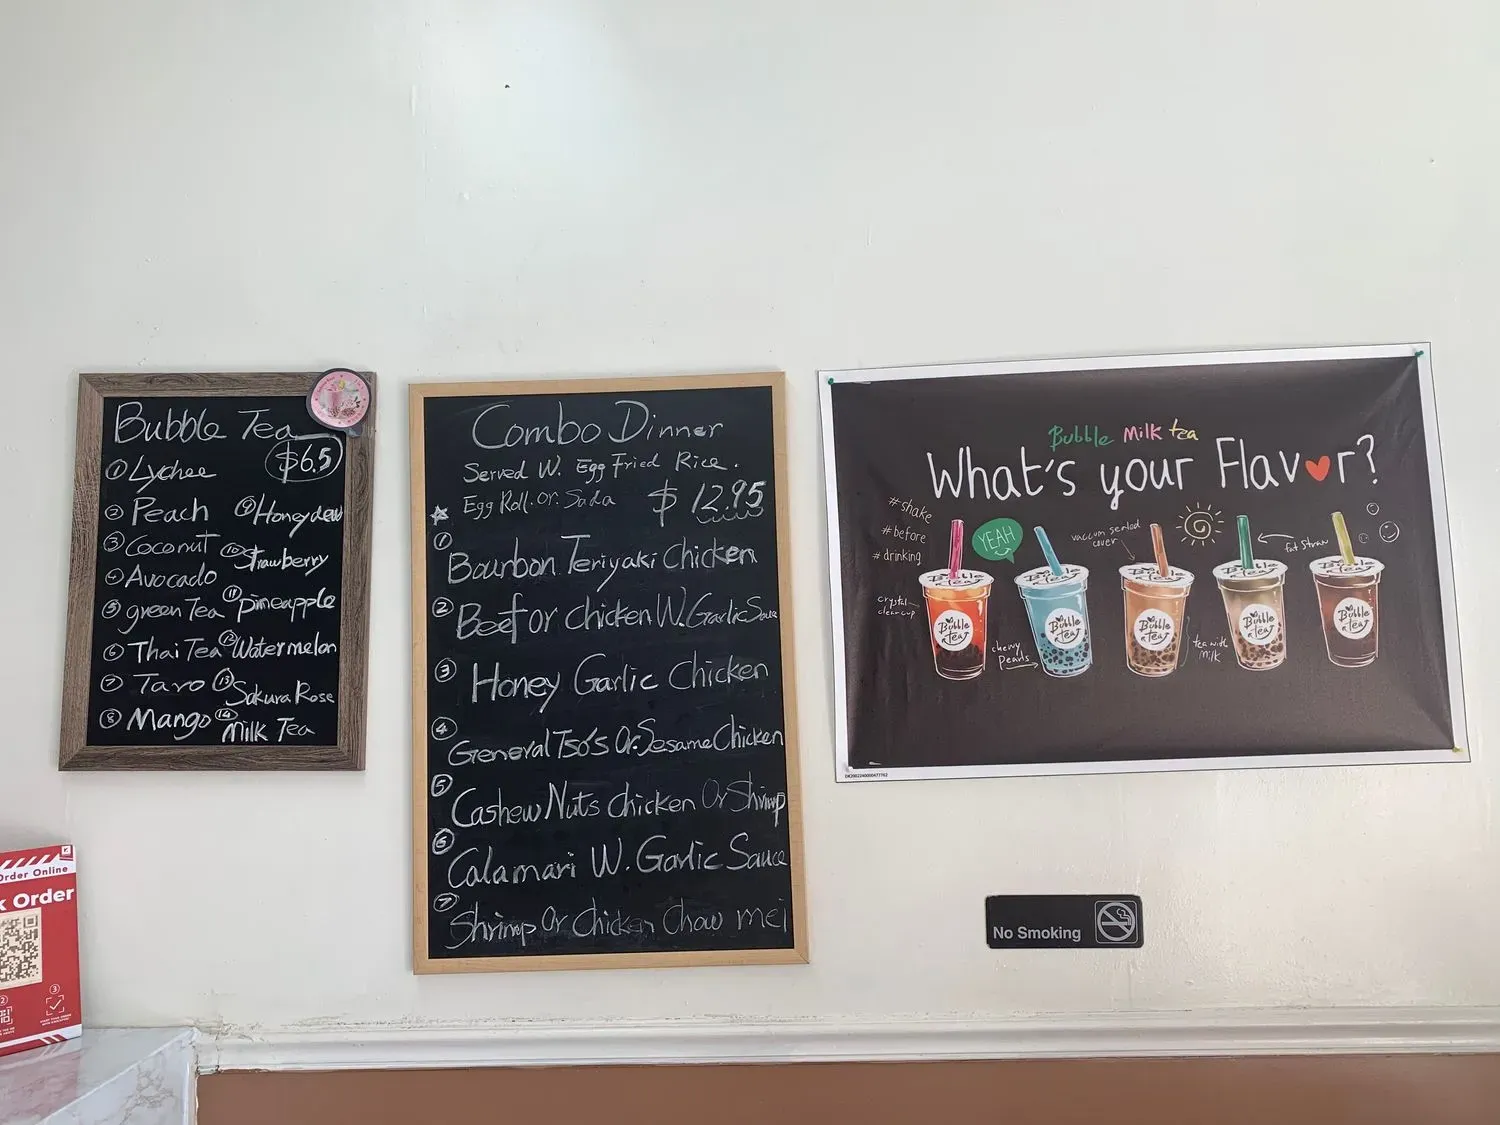 Bubble Tea
$6.5
① Lychee
② Peach
③ Coconut
④ Avocado
⑤ green Tea
⑥ Thai Tea
⑦ Taro
⑧ Mango
⑨ Honeydew
⑩ Strawberry
⑪ pineapple
⑫ Watermelon
⑬ Sakura Rose
⑭ Milk Tea
Combo Dinner
Served W. Egg Fried Rice.
Egg Roll. Or. Soda $12.95
① Bourbon Teriyaki Chicken
② Beef or chicken W. Garlic Sauce
③ Honey Garlic Chicken
④ General Tso's Or. Sesame Chicken
⑤ Cashew Nuts chicken Or Shrimp
⑥ Calamari W. Garlic Sauce
⑦ Shrimp Or Chicken Chow mei
Bubble Milk tea
What's your Flav♥r?
#shake
#before
#drinking
YEAH
vacuum sealed
cover
fat straw
crystal
clear cup
chewy
pearls
tea with
milk
Bubble
tea
Bubble
tea
Bubble
tea
Bubble
tea
Bubble
tea
No Smoking
Order Online
k Order
②
③